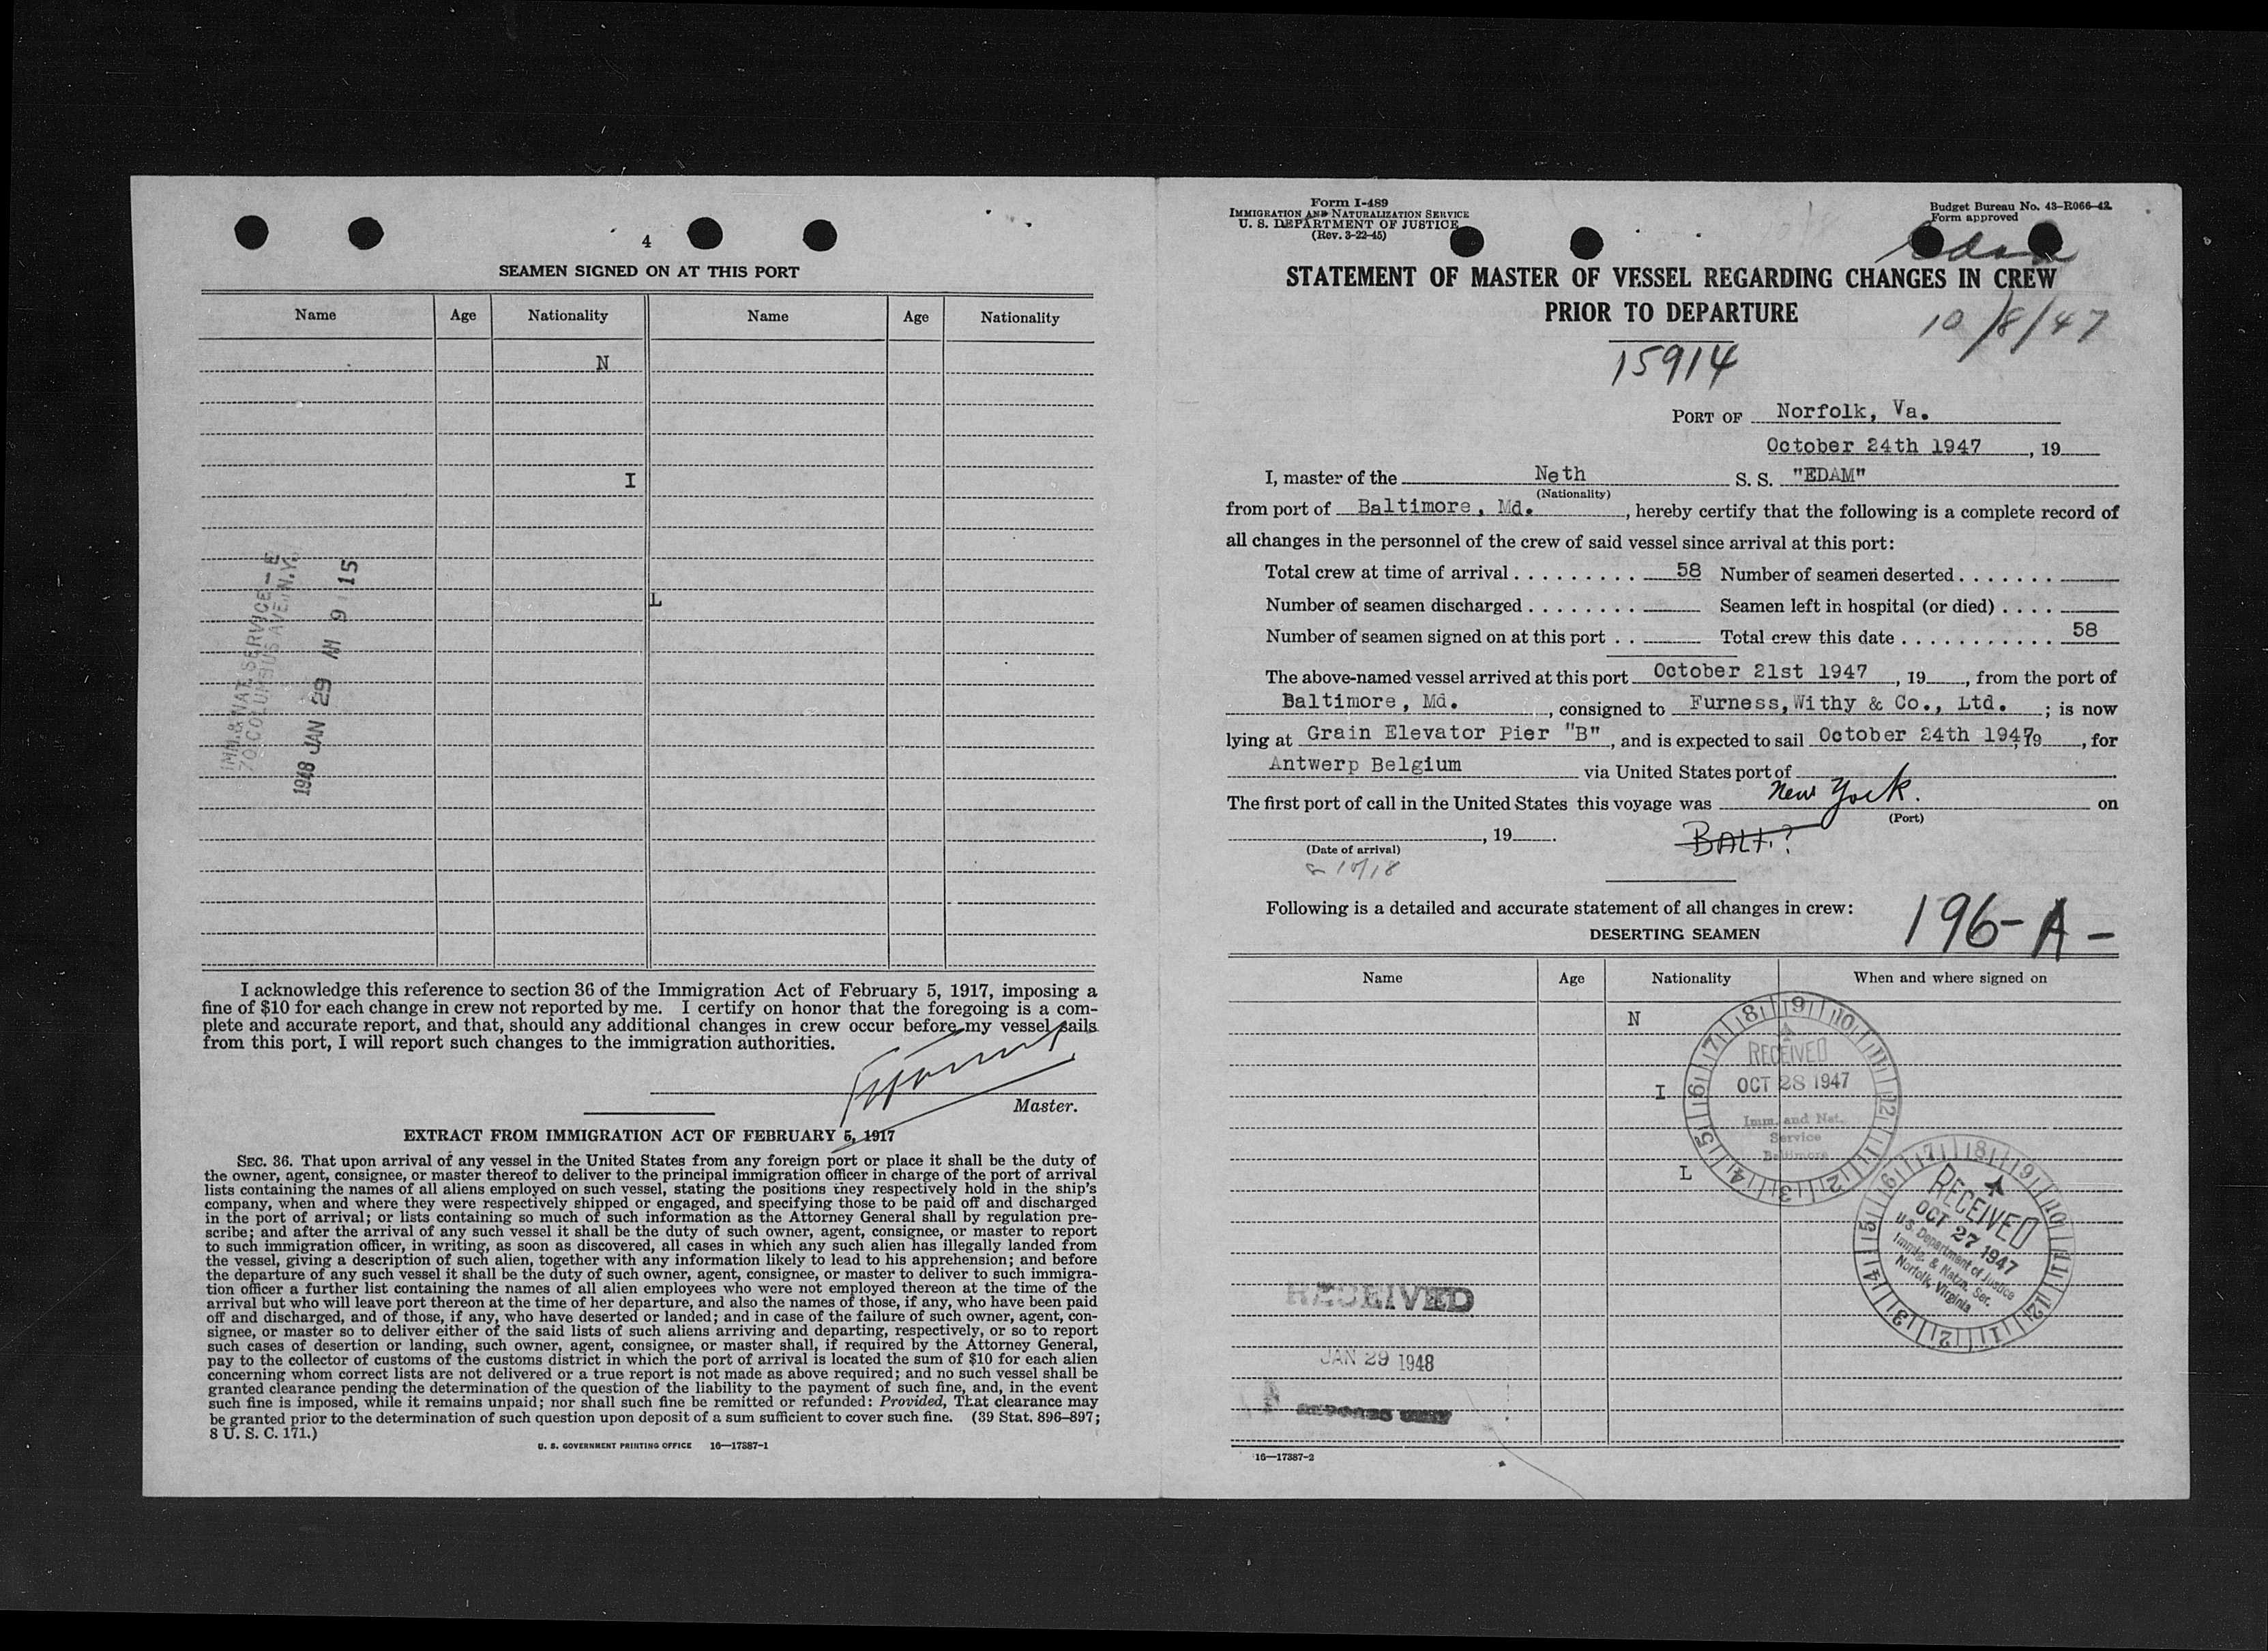 4
SEAMEN SIGNED ON AT THIS PORT
Name Age Nationality Name Age Nationality
N
I
L
IMM. & NAT. SERVICE - E
70 COLUMBUS AVE. N.Y.
1948 JAN 29 AM 9 15
I acknowledge this reference to section 36 of the Immigration Act of February 5, 1917, imposing a
fine of $10 for each change in crew not reported by me. I certify on honor that the foregoing is a com-
plete and accurate report, and that, should any additional changes in crew occur before my vessel sails
from this port, I will report such changes to the immigration authorities.
Master.
EXTRACT FROM IMMIGRATION ACT OF FEBRUARY 5, 1917
SEC. 36. That upon arrival of any vessel in the United States from any foreign port or place it shall be the duty of
the owner, agent, consignee, or master thereof to deliver to the principal immigration officer in charge of the port of arrival
lists containing the names of all aliens employed on such vessel, stating the positions they respectively hold in the ship's
company, when and where they were respectively shipped or engaged, and specifying those to be paid off and discharged
in the port of arrival; or lists containing so much of such information as the Attorney General shall by regulation pre-
scribe; and after the arrival of any such vessel it shall be the duty of such owner, agent, consignee, or master to report
to such immigration officer, in writing, as soon as discovered, all cases in which any such alien has illegally landed from
the vessel, giving a description of such alien, together with any information likely to lead to his apprehension; and before
the departure of any such vessel it shall be the duty of such owner, agent, consignee, or master to deliver to such immigra-
tion officer a further list containing the names of all alien employees who were not employed thereon at the time of the
arrival but who will leave port thereon at the time of her departure, and also the names of those, if any, who have been paid
off and discharged, and of those, if any, who have deserted or landed; and in case of the failure of such owner, agent, con-
signee, or master so to deliver either of the said lists of such aliens arriving and departing, respectively, or so to report
such cases of desertion or landing, such owner, agent, consignee, or master shall, if required by the Attorney General,
pay to the collector of customs of the customs district in which the port of arrival is located the sum of $10 for each alien
concerning whom correct lists are not delivered or a true report is not made as above required; and no such vessel shall be
granted clearance pending the determination of the question of the liability to the payment of such fine, and, in the event
such fine is imposed, while it remains unpaid; nor shall such fine be remitted or refunded: Provided, That clearance may
be granted prior to the determination of such question upon deposit of a sum sufficient to cover such fine. (39 Stat. 896–897;
8 U. S. C. 171.)
U. S. GOVERNMENT PRINTING OFFICE 16—17387-1
Form I-489
IMMIGRATION AND NATURALIZATION SERVICE
U. S. DEPARTMENT OF JUSTICE
(Rev. 3-22-45)
Budget Bureau No. 43-R066-42
Form approved
Edam
STATEMENT OF MASTER OF VESSEL REGARDING CHANGES IN CREW
PRIOR TO DEPARTURE
10/8/47
15914
PORT OF Norfolk, Va.
October 24th 1947 , 19
I, master of the Neth S. S. "EDAM"
(Nationality)
from port of Baltimore, Md. , hereby certify that the following is a complete record of
all changes in the personnel of the crew of said vessel since arrival at this port:
Total crew at time of arrival . . . . . . . . . 58 Number of seamen deserted . . . . . . .
Number of seamen discharged . . . . . . . . Seamen left in hospital (or died) . . . .
Number of seamen signed on at this port . . Total crew this date . . . . . . . . . . . 58
The above-named vessel arrived at this port October 21st 1947 , 19 , from the port of
Baltimore, Md. , consigned to Furness,Withy & Co., Ltd. ; is now
lying at Grain Elevator Pier "B" , and is expected to sail October 24th 1947, 19 , for
Antwerp Belgium via United States port of
The first port of call in the United States this voyage was New York. on
(Port)
, 19 .
BALT.?
(Date of arrival)
10/18
Following is a detailed and accurate statement of all changes in crew:
196-A-
DESERTING SEAMEN
Name Age Nationality When and where signed on
N
I
L
7 8 9 10 11 12 1 2 3 4 5 6
RECEIVED
OCT 28 1947
Imm. and Nat.
Service
Baltimore
6 7 8 9 10 11 12 1 2 3 4 5
RECEIVED
OCT 27 1947
U.S. Department of Justice
Immig. & Natzn. Ser.
Norfolk, Virginia
RECEIVED
JAN 29 1948
16—17387-2